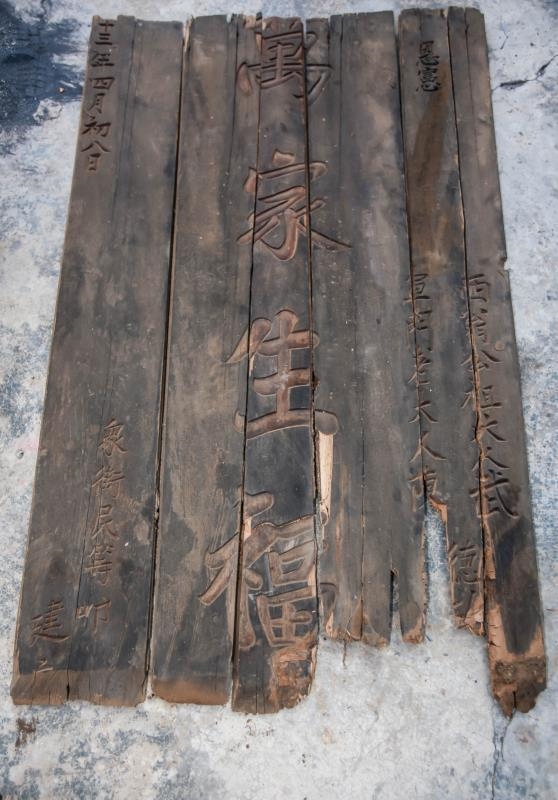 翁公祖大人武
恩憲
老大人
萬家生福
衆街民等叩
建立
十三年四月初八日